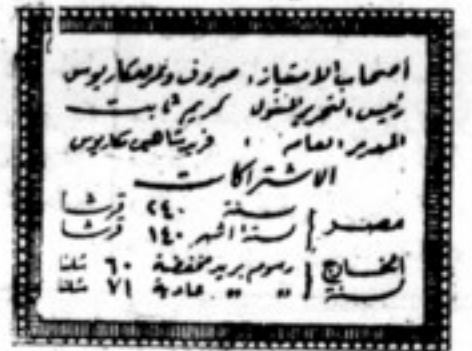 أصحاب الامتياز: صروف ونمر ومكاريوس
رئيس التحرير المسئول كريم ثابت
المدير العام : فريد شاهين مكاريوس
الاشتراكات
مصر { سنة ٢٤٠ قرشا
ستة اشهر ١٤٠ قرشا
الخارج سنة { رسوم بريد مخفضة ٦٠ شلنا
» » عادية ٧١ شلنا